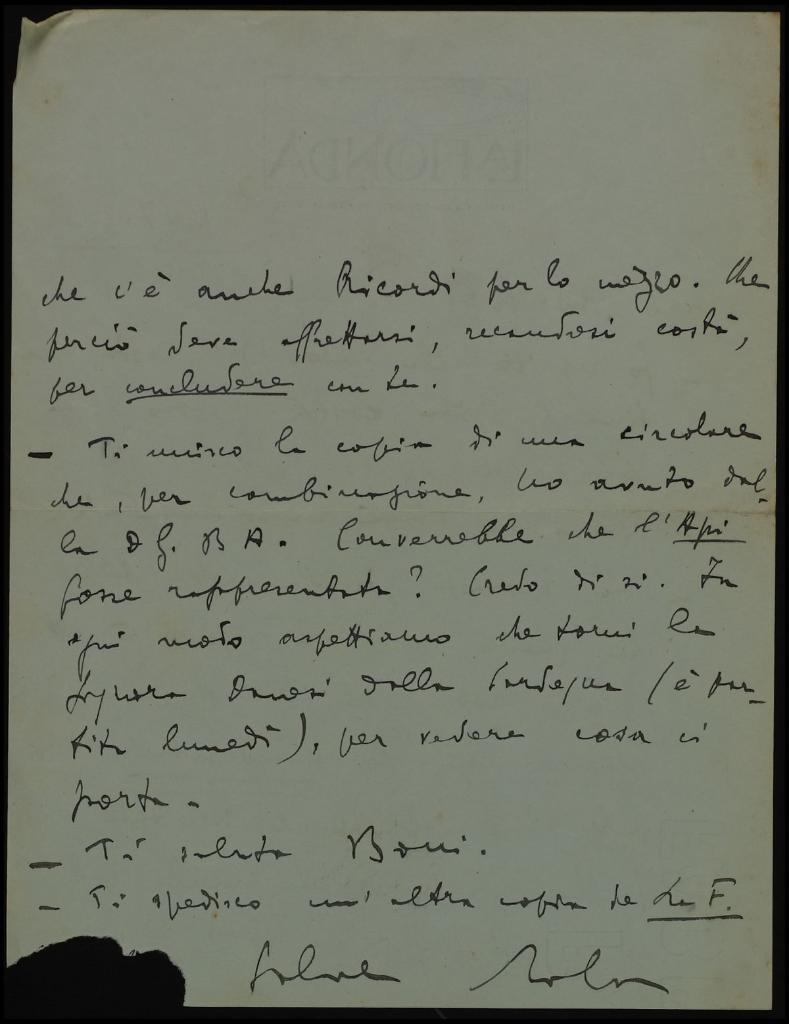 LA FIONDA
che c'è anche Ricordi per lo mezzo. Che
perciò deve affrettarsi, recandosi costà,
per concludere con te.
— Ti unisco la copia di una circolare
che, per combinazione, ho avuto dal-
la D G. B A. Converrebbe che l'Api
fosse rappresentata? Credo di si. In
ogni modo aspettiamo che torni la
Signora Danesi dalla Sardegna (è par-
tita lunedì), per vedere cosa ci
porta.
— Ti saluta Boni.
— Ti spedisco un'altra copia de La F.
Salve